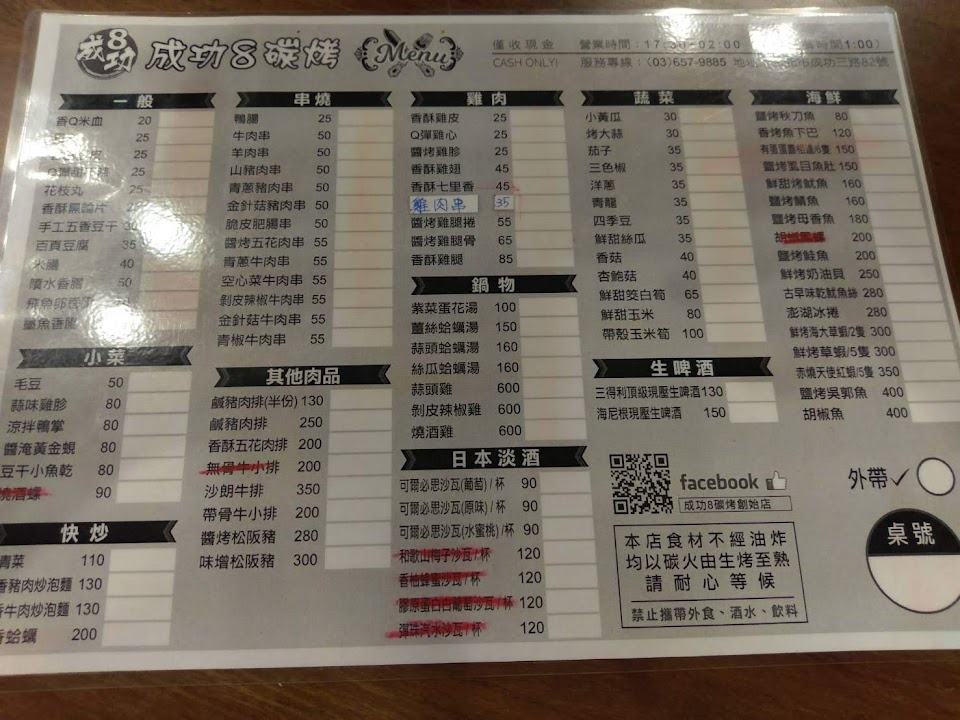 成功8
成功8碳烤
Menu
僅收現金
CASH ONLY!
營業時間：17:30-02:00
時間1:00)
服務專線：(03)657-9885
成功三路82號
一般
香Q米血 20
25
皮 25
25
花枝丸
香酥黑輪片
手工五香豆干 30
百頁豆腐 35
米腸 40
噴水香腸 50
串燒
鴨腸 25
牛肉串 50
羊肉串 50
山豬肉串 50
青蔥豬肉串 50
金針菇豬肉串 50
脆皮肥腸串 50
醬烤五花肉串 55
青蔥牛肉串 55
空心菜牛肉串 55
剝皮辣椒牛肉串 55
金針菇牛肉串 55
青椒牛肉串 55
雞肉
香酥雞皮 25
Q彈雞心 25
醬烤雞胗 25
香酥雞翅 45
香酥七里香 45
雞肉串 35
醬烤雞腿捲 55
醬烤雞腿骨 65
香酥雞腿 85
蔬菜
小黃瓜 30
烤大蒜 30
茄子 35
三色椒 35
洋蔥 35
青龍 35
四季豆 35
鮮甜絲瓜 35
香菇 40
杏鮑菇 40
鮮甜筊白筍 65
鮮甜玉米 80
帶殼玉米筍 100
海鮮
鹽烤秋刀魚 80
香烤魚下巴 120
150
鹽烤虱目魚肚 150
鮮甜烤魷魚 160
鹽烤鯖魚 160
鹽烤母香魚 180
200
鹽烤鮭魚 200
鮮烤奶油貝 250
古早味乾魷魚絲 280
澎湖冰捲 280
鮮烤海大草蝦/2隻 300
鮮烤草蝦/5隻 300
赤燒天使紅蝦/5隻 350
鹽烤吳郭魚 400
胡椒魚 400
小菜
毛豆 50
蒜味雞胗 80
涼拌鴨掌 80
醬淹黃金蜆 80
豆干小魚乾 80
燒酒螺 90
快炒
青菜 110
香豬肉炒泡麵 130
香牛肉炒泡麵 130
香蛤蠣 200
其他肉品
鹹豬肉排(半份) 130
鹹豬肉排 250
香酥五花肉排 200
無骨牛小排 200
沙朗牛排 350
帶骨牛小排 200
醬烤松阪豬 280
味增松阪豬 300
鍋物
紫菜蛋花湯 100
薑絲蛤蠣湯 150
蒜頭蛤蠣湯 160
絲瓜蛤蠣湯 160
蒜頭雞 600
剝皮辣椒雞 600
燒酒雞 600
日本淡酒
可爾必思沙瓦(葡萄)/杯 90
可爾必思沙瓦(原味)/杯 90
可爾必思沙瓦(水蜜桃)/杯 90
和歌山梅子沙瓦/杯 120
香柚蜂蜜沙瓦/杯 120
膠原蛋白白葡萄沙瓦/杯 120
彈珠汽水沙瓦/杯 120
生啤酒
三得利頂級現壓生啤酒 130
海尼根現壓生啤酒 150
facebook
成功8碳烤創始店
本店食材不經油炸
均以碳火由生烤至熟
請耐心等候
禁止攜帶外食、酒水、飲料
外帶✓
桌號